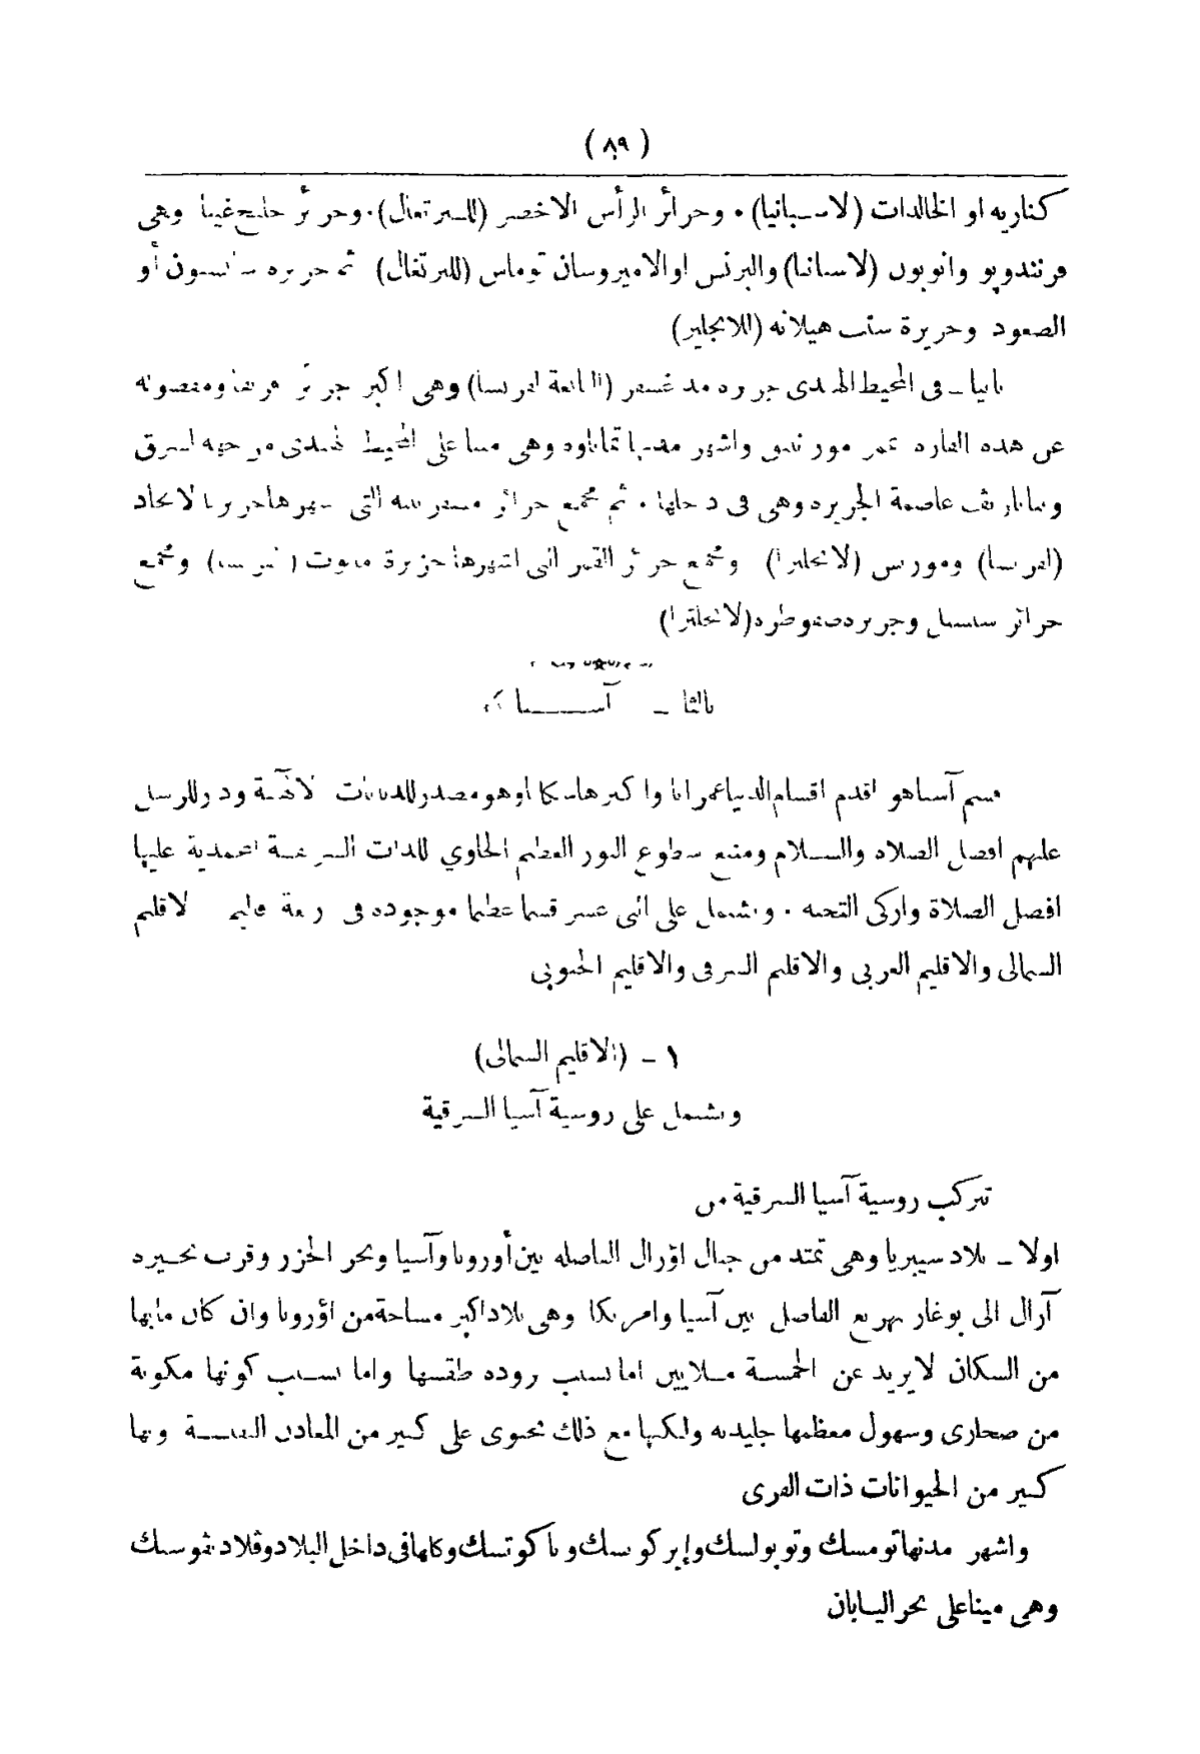 ( ٨٩ )
كناريه او الخالدات (لاسبانيا) . وجزائر الرأس الاخضر (للبرتغال) . وجزائر خليج غينيا وهى
فرنندوپو وانوبون (لاسبانيا) والبرنس او الامير وسان توماس (للبرتغال) ثم جزيره سنسون أو
الصعود وجزيرة سنت هيلانه (للانجليز)
ثانيا ـ فى المحيط الهندى جزيره مدغسقر (التابعة لفرنسا) وهى اكبر جزائر فريقا ومفصوله
عن هذه القاره بممر موزنبيق واشهر مدنها تماتاوه وهى مينا على المحيط الهندى من جهه الشرق
وتناناريف عاصمة الجزيره وهى فى داخلها . ثم مجمع جزائر التى اشهرها جزيرتا الاتحاد
(لفرنسا) وموريس (لانجلترا) ومجمع جزائر القمر التى اشهرها جزيرة مايوت (لفرنسا) ومجمع
جزائر سيشيل وجزيرة سقوطره (لانجلترا)
ثالثا ـ آسيا
قسم آسيا هو اقدم اقسام الدنيا عمرانا واكبرها سكانا وهو مصدر للديانات ودور للرسل
عليهم افضل الصلاه والسلام ومنبع سطوع النور العظيم الحاوي للذات الشريفة المحمدية عليها
افضل الصلاة وازكى التحيه . ويشتمل على اثنى عشر قسما عظيما موجوده فى اربعة اقاليم الاقليم
الشمالى والاقليم الغربى والاقليم الشرقى والاقليم الجنوبى
١ ـ (الاقليم الشمالى)
ويشتمل على روسية آسيا الشرقية
تتركب روسية آسيا الشرقية من
اولا ـ بلاد سيبريا وهى تمتد من جبال اؤرال الفاصله بين أوروبا وآسيا وبحر الخزر وقرب بحيره
آرال الى بوغاز بهرنج الفاصل بين آسيا وامريكا وهى بلاد اكبر مساحة من اؤروبا وان كان مابها
من السكان لا يزيد عن الخمسة ملايين اما بسبب بروده طقسها واما بسبب كونها مكونة
من صحارى وسهول معظمها جليديه ولكنها مع ذلك تحتوى على كثير من المعادن النفيسة وبها
كثير من الحيوانات ذات الفرى
واشهر مدنها تومسك وتوبولسك وإيركوتسك وياكوتسك وكلها فى داخل البلاد وفلاديفوستك
وهى مينا على بحر اليابان